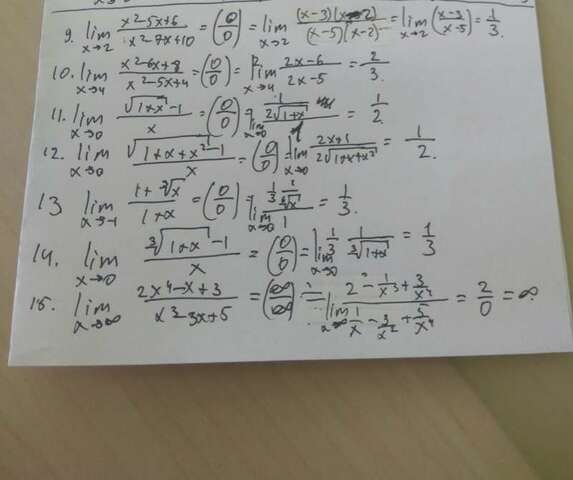 9. lim x→2 (x²-5x+6)/(x²-7x+10) = (0/0) = lim x→2 ((x-3)(x-2))/((x-5)(x-2)) = lim x→2 (x-3/x-5) = 1/3.
10. lim x→4 (x²-6x+8)/(x²-5x+4) = (0/0) = lim x→4 (2x-6)/(2x-5) = 2/3.
11. lim x→0 (√(1+x)-1)/x = (0/0) = lim x→0 1/(2√(1+x)) = 1/2.
12. lim x→0 (√(1+x+x²)-1)/x = (0/0) = lim x→0 (2x+1)/(2√(1+x+x²)) = 1/2.
13 lim x→-1 (1+∛x)/(1+x) = (0/0) = lim x→0 (1/3 1/∛x²)/1 = 1/3.
14. lim x→0 (∛(1+x)-1)/x = (0/0) = lim x→0 1/3 1/∛(1+x) = 1/3
15. lim x→∞ (2x⁴-x+3)/(x³-3x+5) = (∞/∞) = lim x→∞ (2-1/x³+3/x⁴)/(1/x-3/x²+5/x⁴) = 2/0 = ∞